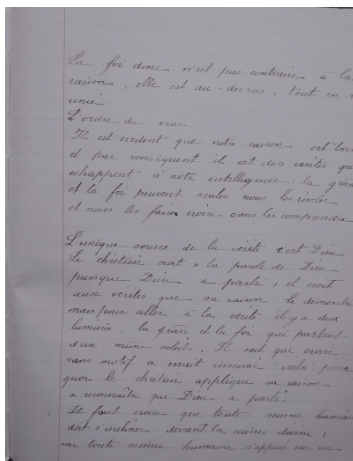 La foi donc n'est pas contraire à la
raison, elle est au-dessus, tout en
unie
L'ordre du vrai
Il est évident que notre raison est
et par conséquent il est des vérités qui
échappent à notre intelligence la
et la foi peuvent seules nous les
et nous les faire croire sans les comprendre
L'unique source de la vérité c'est Dieu
Le chrétien croit à la parole de Dieu
puisque Dieu a parlé, il croit
aux vérités que sa raison le
mais pour aller à la vérité il y a deux
lumières la grâce et la foi qui partent
d'un même soleil. Il sait que croire
sans motif ce serait insensé voilà pour
quoi le chrétien applique sa raison
à reconnaître que Dieu a parlé
Il faut croire que toute science humaine
doit s'incliner devant la science divine ;
car toute science humaine s'appuie sur un